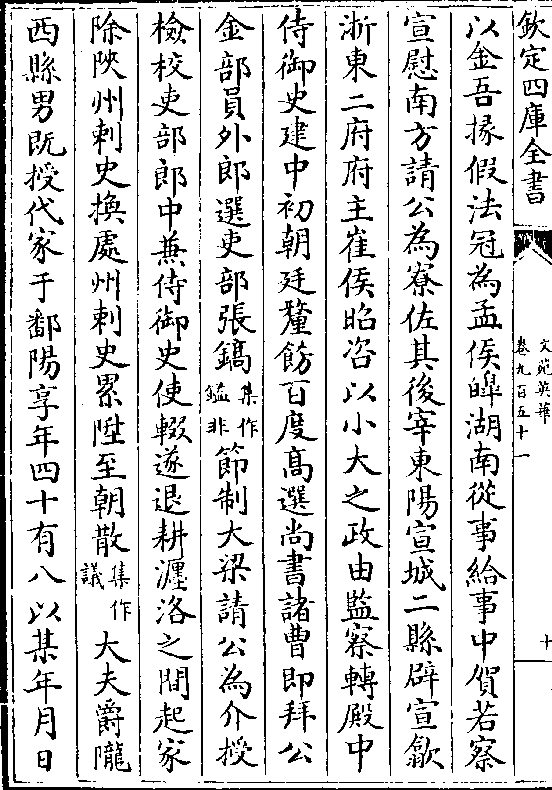 欽定四庫全書
文苑英華
卷九百五十一
十
以金吾掾假法冠為孟侯皥湖南從事給事中賀若察
宣慰南方請公為寮佐其後宰東陽宣城二縣辟宣歙
浙東二府府主崔侯昭咨以小大之政由監察轉殿中
侍御史建中初朝廷釐飭百度髙選尚書諸曹即拜公
金部員外郎選吏部張鎬集作鎰非節制大梁請公為介授
檢校吏部郎中兼侍御史使輟遂退耕瀍洛之間起家
除陜州刺史換處州刺史累陞至朝散集作議大夫爵隴
西縣男既授代家于鄱陽享年四十有八以某年月日